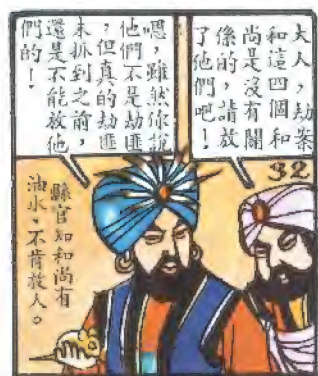 大人，劫案
和這四個和
尚是沒有關
係的，請放
了他們吧！
嗯，雖然你說
他們不是劫匪
，但真的劫匪
未抓到之前，
還是不能放他
們的！
32
縣官知和尚有
油水，不肯放人。